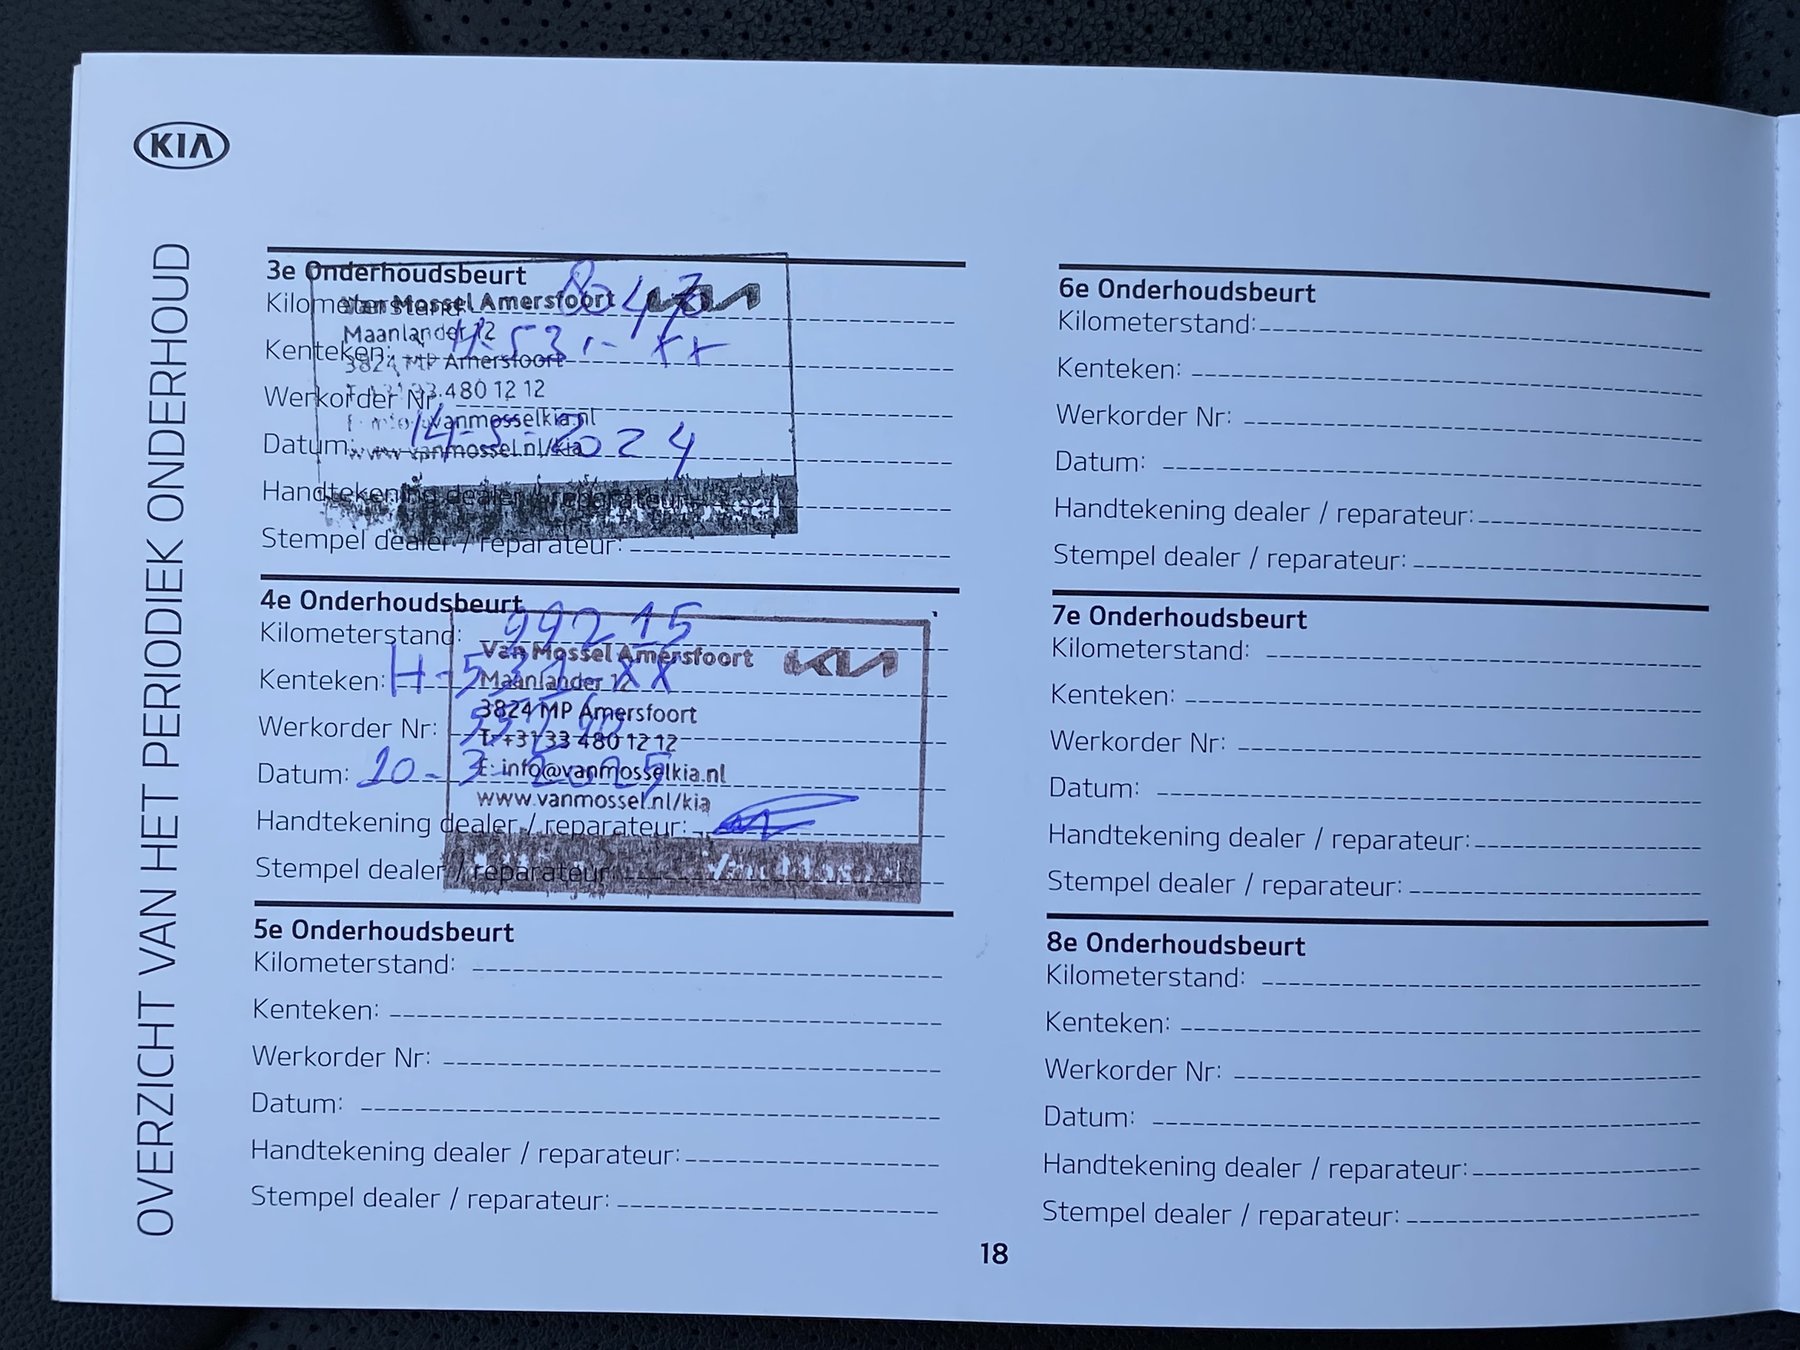 KIA
OVERZICHT VAN HET PERIODIEK ONDERHOUD
3e Onderhoudsbeurt
Kilometerstand:
Van Mossel Amersfoort KIA
Maanlander 12
Kenteken: H-531-XX
3824 MP Amersfoort
Werkorder Nr:
480 12 12
vanmosselkia.nl
Datum: 14-5-2024
www.vanmossel.nl/kia
Handtekening dealer / reparateur:
Stempel dealer / reparateur:
4e Onderhoudsbeurt
Kilometerstand: 99215
Van Mossel Amersfoort KIA
Kenteken: H-531-XX
Maanlander 12
3824 MP Amersfoort
Werkorder Nr:
T: +31 33 480 12 12
Datum: 10-3-2025
E: info@vanmosselkia.nl
www.vanmossel.nl/kia
Handtekening dealer / reparateur:
Stempel dealer / reparateur:
Van Mossel
5e Onderhoudsbeurt
Kilometerstand:
Kenteken:
Werkorder Nr:
Datum:
Handtekening dealer / reparateur:
Stempel dealer / reparateur:
6e Onderhoudsbeurt
Kilometerstand:
Kenteken:
Werkorder Nr:
Datum:
Handtekening dealer / reparateur:
Stempel dealer / reparateur:
7e Onderhoudsbeurt
Kilometerstand:
Kenteken:
Werkorder Nr:
Datum:
Handtekening dealer / reparateur:
Stempel dealer / reparateur:
8e Onderhoudsbeurt
Kilometerstand:
Kenteken:
Werkorder Nr:
Datum:
Handtekening dealer / reparateur:
Stempel dealer / reparateur:
18